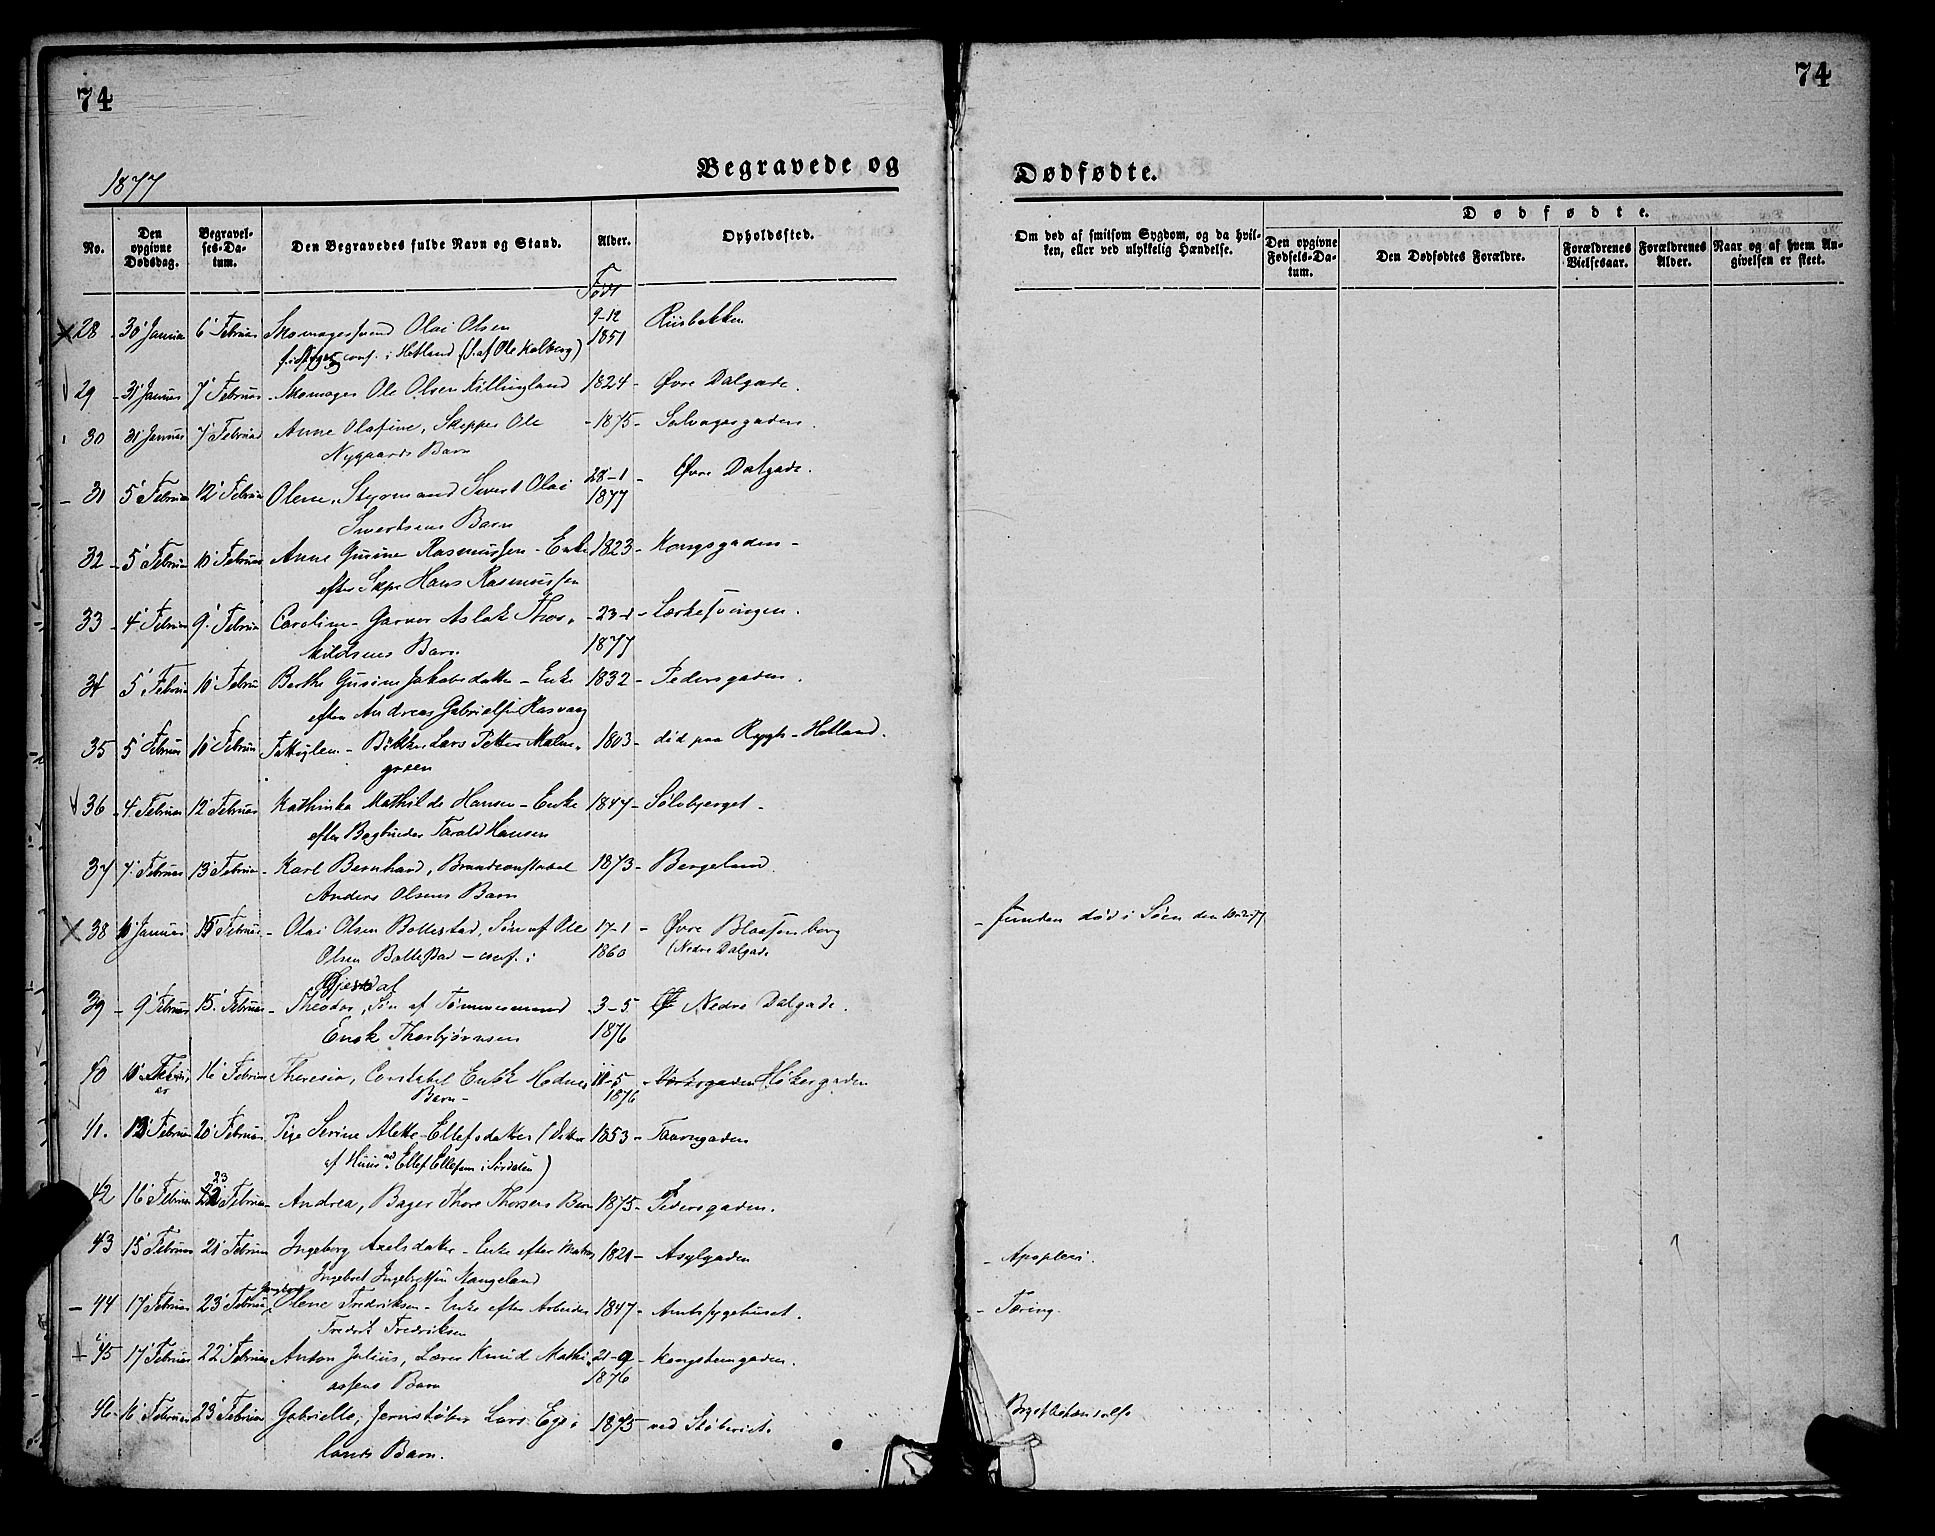 74
74
1877
Begravede og
Dødfødte.
No.
Den opgivne Dødsdag.
Begravelses-Datum.
Den Begravedes fulde Navn og Stand.
Alder.
Opholdssted.
Om død af smitsom Sygdom, og da hvilken, eller ved ulykkelig Hændelse.
Dødfødte.
Den opgivne Fødsels-Datum.
Den Dødfødtes Forældre.
Forældrenes Vielsesaar.
Forældrenes Alder.
Naar og af hvem Angivelsen er skeet.
Født
28 30' Januar 6' Februar Skomagersvend Olai Olsen 9-12 1851
conf. i Hetland (S. af Ole Kalberg)
29 31' Januar 7' Februar Skomager Ole Olsen Killingland 1824 Øvre Dalgade.
30 31' Januar 7' Februar Anne Olafine, Skipper Ole 1875
Nygaards Barn
31 5' Februar 12' Februar Olene, Styrmand Sivert Olai 28-1 1877 Øvre Dalgade.
Sivertsens Barn
32 5' Februar 10' Februar Anne Gurine Rasmussen - Enke 1823 Kongsgaden
efter Skpr Hans Rasmussen
33 4' Februar 9' Februar Caroline - Garver Aslak Thor- 23-1 1877
kildsens Barn
34 5' Februar 10' Februar Berthe Gurine Jakobsdatter - Enke 1832 Pedersgaden.
efter Andreas Gabrielsen Rasvaag
35 5' Februar 10' Februar Fattiglem - Bøkker Lars Petter Malm- 1803 død paa Rygh - Hetland.
green
36 4' Februar 12' Februar Kathinka Mathilde Hansen - Enke 1847 Sølvbjerget
efter Bogbinder Tarald Hansen
37 7' Februar 13' Februar Karl Bernhard, Brandconstabel 1873 Bergeland.
Anders Olsens Barn
38 Januar 15' Februar Olai Olsen Bollestad, Søn af Ole 17-1 1860 Øvre Blaasenborg funden død i Søen den
Olsen Bollestad - conf. i (Nedre Dalgade
Gjesdal
39 9' Februar 15' Februar Theodor, Søn af Tømmermand 3-5 1876 Nedre Dalgade.
Enok Thorbjørnsen
40 10' Februar 16' Februar Theresia, Constabel Enok Hodnes 11-5 1876 Høkergaden
Barn
41. 13' Februar 20' Februar Pige Serine Alette Ellefsdatter (Datter 1853
af Huusmd Ellef Ellefsen i Sirdalen)
42 16' Februar 23 Februar Andrea, Bager Thore Thorsens Barn 1875 Pedersgaden.
43 15' Februar 21' Februar Ingeborg Axelsdatter - Enke efter Matros 1821 Asylgaden Apoplexi.
Ingebret Ingebretsen Stangeland
44 17' Februar 23' Februar Ingeborg Olene Fredriksen - Enke efter Arbeider 1847 Amtssygehuset. Tæring.
Fredrik Fredriksen
45 17' Februar 22' Februar Anton Julius, Lærer Knud Mathi- 21-9 1876 Kongsteengaden.
assens Barn
46 16' Februar 23' Februar Gabrielle, Jernstøber Lars Ege- 1875 ved Støberiet.
lands Barn.